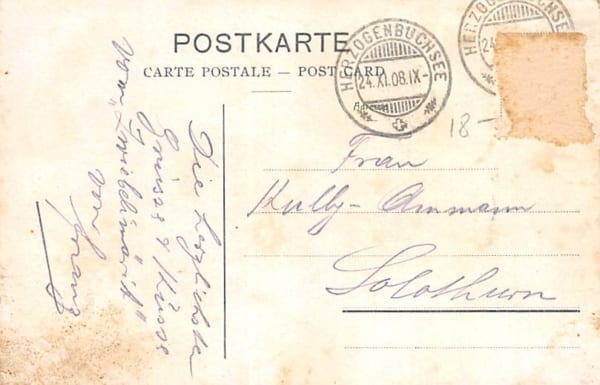 POSTKARTE
CARTE POSTALE — POST CARD
HERZOGENBUCHSEE
24.XI.08.IX-
HERZOGENBUCHSEE
24
18-
Frau
Kully-Ammann
Solothurn
Die herzlichsten
Grüsse & Küsse
vom "Zwiebelmärit"
von Franz